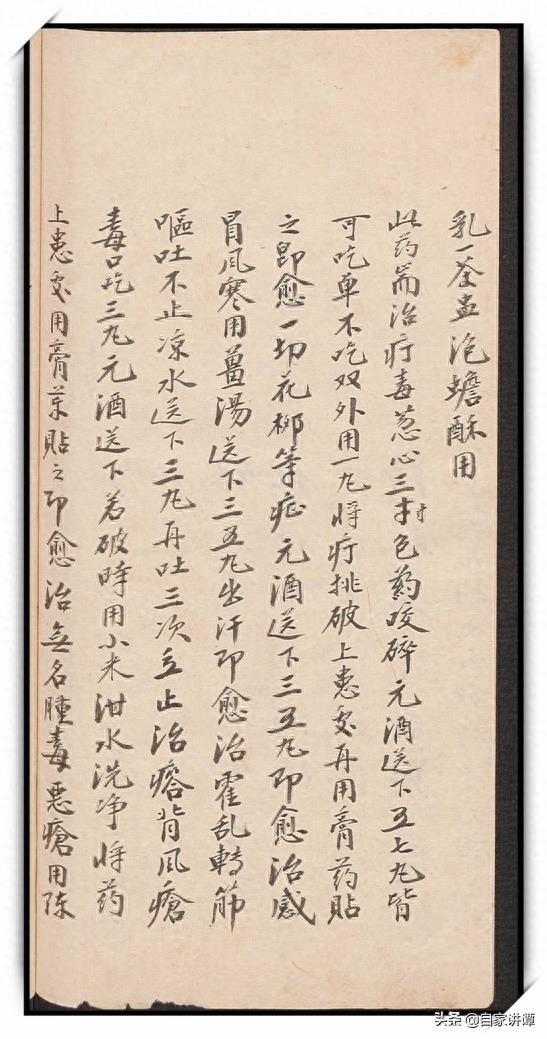 乳一荃盅泡蟾酥用
此药耑治疔毒葱心三村色药咬碎元酒送下五七九皆
可吃单不吃双外用一九将疔挑破上患处再用膏药贴
之即愈一切花柳等症元酒送下三五九即愈治感
冒风寒用薑湯送下三五九出汗即愈治霍乱轉筋
嘔吐不止凉水送下三九再吐三次立止治瘩背风瘡
毒口吃三九元酒送下若破時用小米泔水洗净将药
上患处用膏药貼之即愈治无名腫毒恶瘡用陈
头条 @自家讲谭